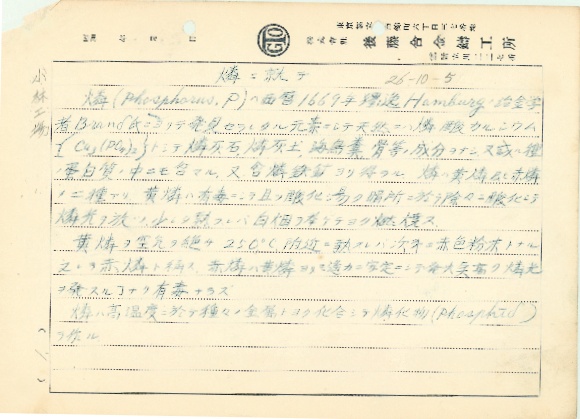 株式会社 後藤合金鋳工所
燐ニ就テ 26-10-5
燐(Phosphorus, P)ハ西暦1669年獨逸Hamburgノ冶金学
者Brand氏ニヨリテ発見セラレタル元素ニシテ天然ニハ燐酸カルシウム
トシテ燐灰石燐灰土、海鳥糞、骨等ノ成分ヲナシ又或ル種
ノ蛋白質ノ中ニモ含マル、又含燐鉄鉱ヨリ得ラル 燐ハ黄燐ト赤燐
ノ二種アリ、黄燐ハ有毒ニシテ且ツ酸化シ易ク暗所ニ於テ徐々ニ酸化シテ
燐光ヲ放ツ、少シク熱スレバ白煙ヲ挙ゲテヨク燃焼ス
黄燐ヲ空気ヲ絶チ250℃附近ニ熱スレバ次第ニ赤色粉末トナル
之レヲ赤燐ト称ス、赤燐ハ黄燐ヨリモ遙カニ安定ニシテ発火点高ク燐光
ヲ発スルコトナク有毒ナラズ
燐ハ高温度ニ於テ種々ノ金属トヨク化合シテ燐化物(Phosphid)
ヲ作ル
小林工場